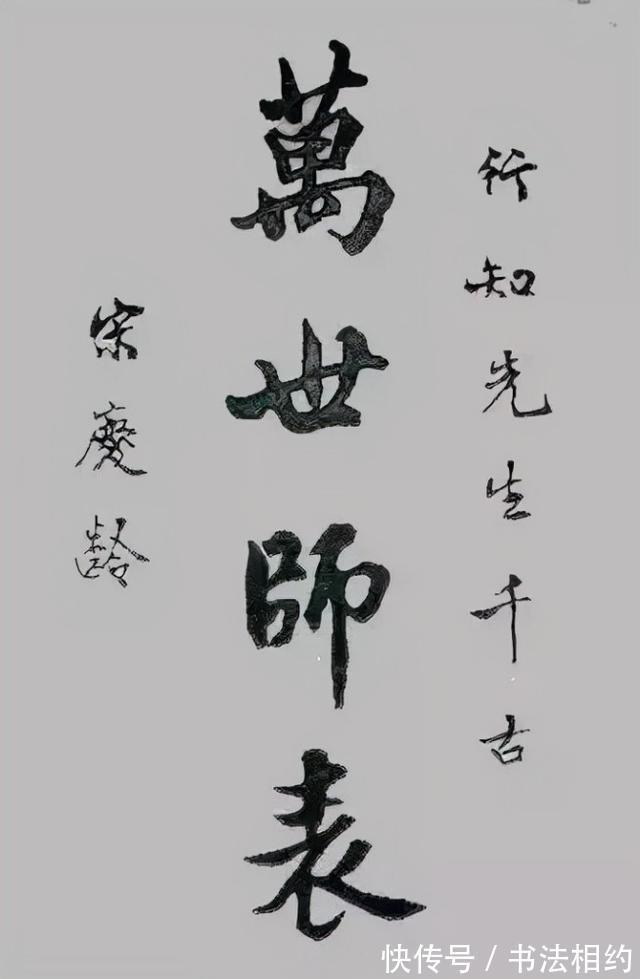 行知先生千古
萬世師表
宋慶齡
快传号 / 书法相约